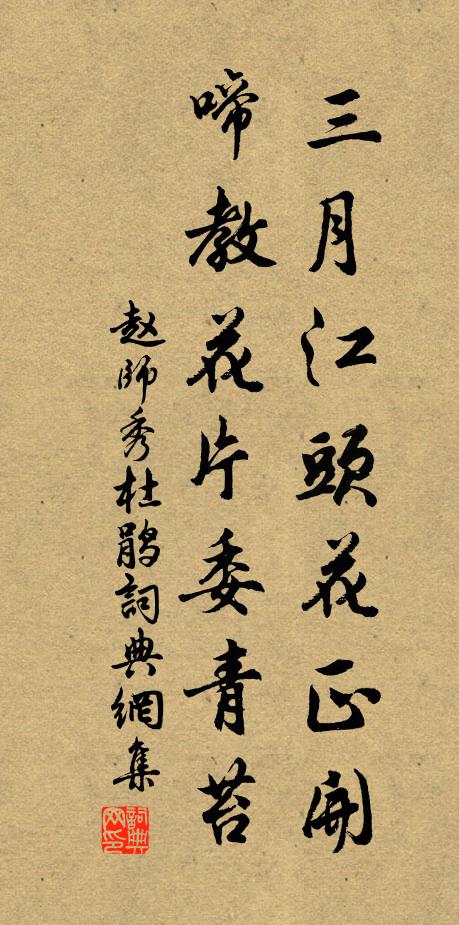 三月江頭花正開
啼教花片委青苔
赵師秀杜鹃詞典網集
詞典网印